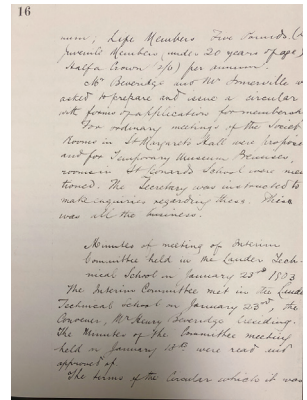 16
num, Life Members Five Pounds. (
Juvenile Members, under 20 years of age)
Half a Crown (2/6) per annum.
Mr Beveridge and Mr Somerville w
asked to prepare and issue a circular
with forms of application for membersh
For ordinary meetings of the Societ
Rooms in St Margarets Hall were propose
and for Temporary Museum Premises,
rooms in St Leonards School were men
tioned. The Secretary was instructed to
make inquiries regarding these. This
was all the business.
Minutes of meeting of Interim
Committee held in the Lauder Tech-
nical School on January 23rd 1903
The Interim Committee met in the Lauder
Technical School on January 23rd, the
Convener, Mr Henry Beveridge presiding.
The Minutes of the Committee meeting
held on January 18th were read and
approved of.
The terms of the Circular which it was